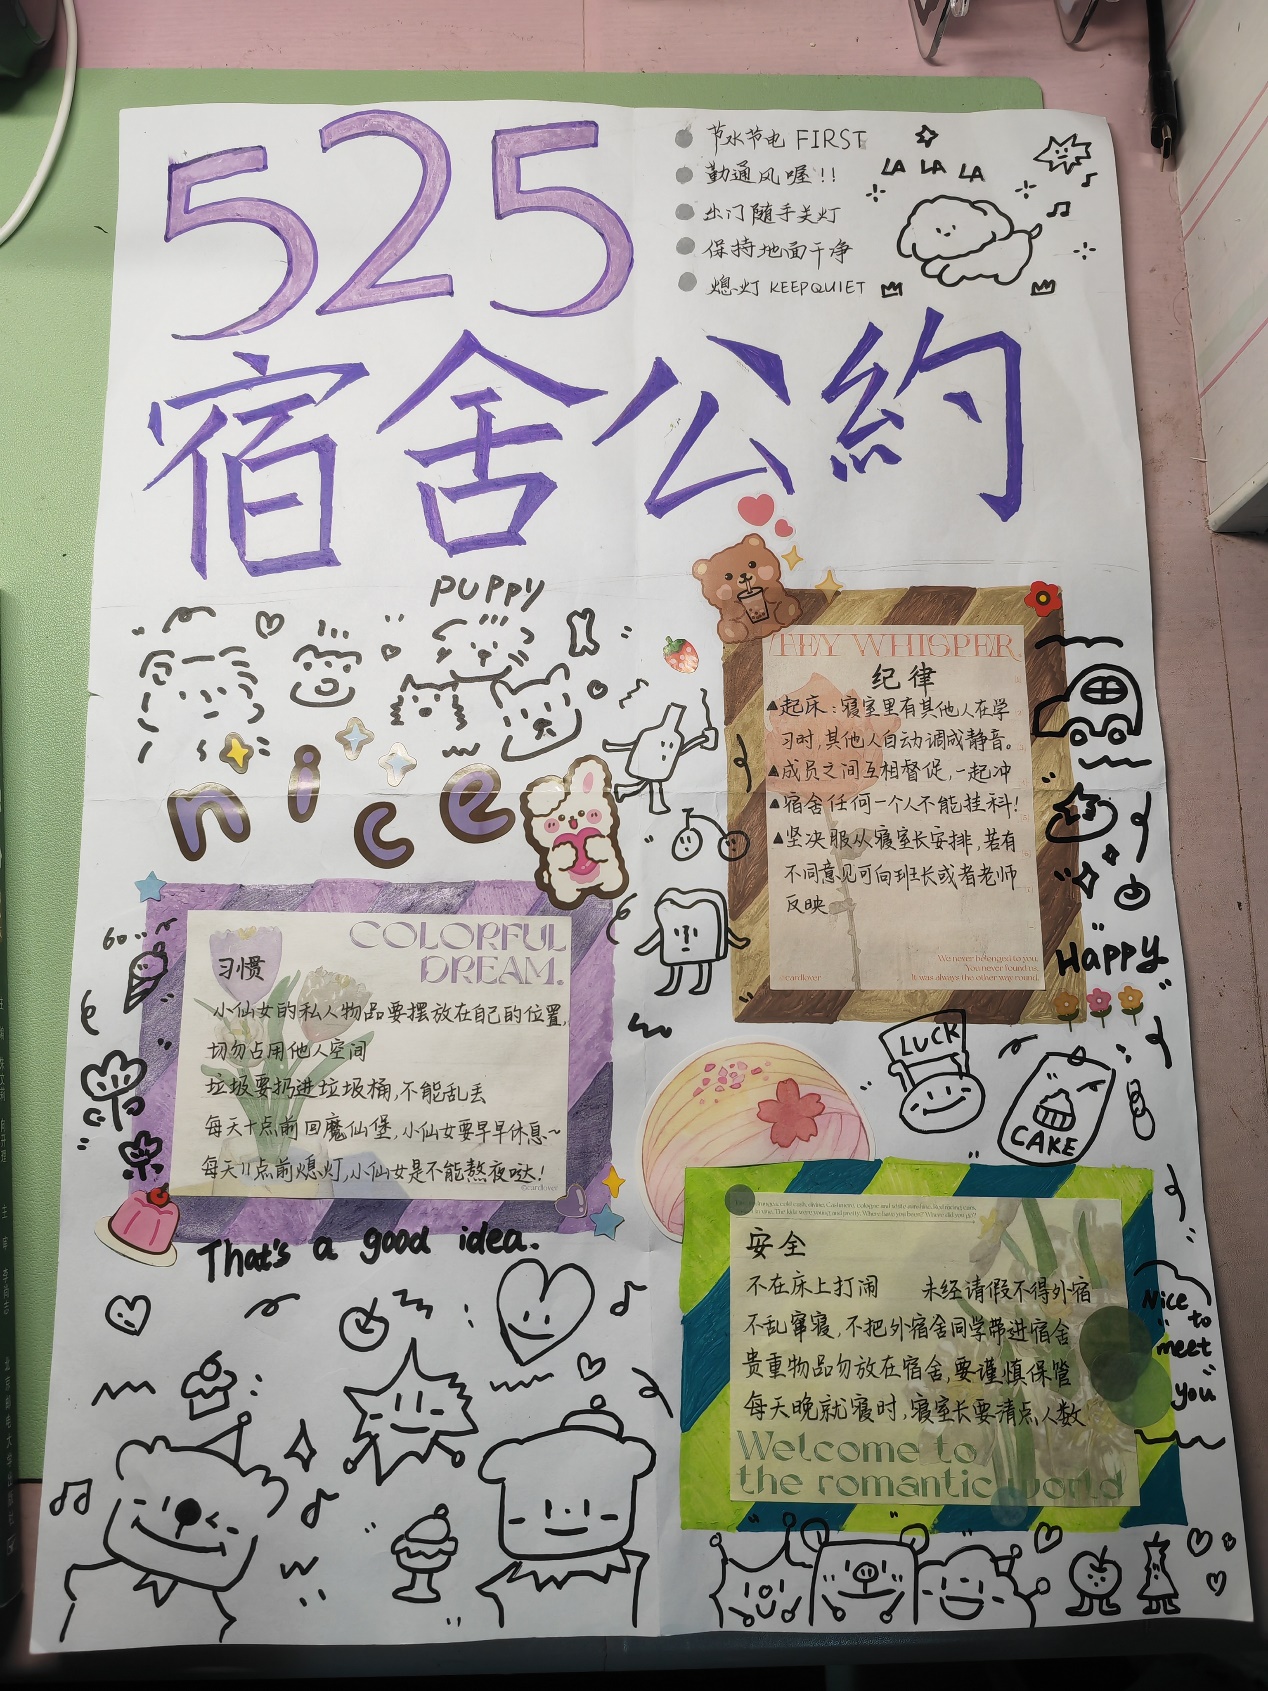 525
宿舍公約
节水节电 FIRST
勤通风喔!!
出门随手关灯
保持地面干净
熄灯 KEEP QUIET
LA LA LA
PUPPY
nice
THEY WHISPER.
纪律
▲起床:寝室里有其他人在学
习时,其他人自动调成静音。
▲成员之间互相督促,一起冲
▲宿舍任何一个人不能挂科!
▲坚决服从寝室长安排,若有
不同意见可向班长或者老师
反映
We never belonged to you.
You never found us.
It was always the other way round.
©cardlover
Happy
COLORFUL
DREAM.
习惯
小仙女的私人物品要摆放在自己的位置,
切勿占用他人空间
垃圾要扔进垃圾桶,不能乱丢
每天十点前回魔仙堡,小仙女要早早休息~
每天11点前熄灯,小仙女是不能熬夜哒!
©cardlover
That's a good idea.
LUCK
CAKE
安全
不在床上打闹 未经请假不得外宿
不乱窜寝,不把外宿舍同学带进宿舍
贵重物品勿放在宿舍,要谨慎保管
每天晚就寝时,寝室长要清点人数
Welcome to
the romantic world
Nice
to
meet
you